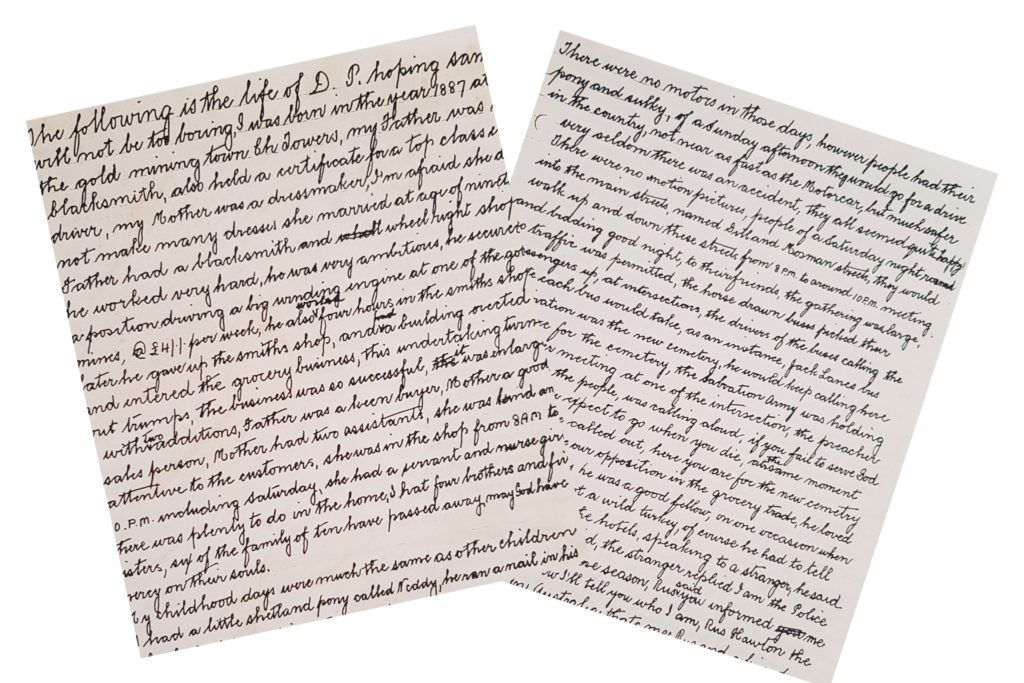 The following is the life of D. P. hoping sam
will not be too boring, I was born in the year 1887 at
the gold mining town Ch Towers, my Father was
blacksmith, also held a certificate for a top class e
driver, my Mother was a dressmaker, I'm afraid she d
not make many dresses she married at age of ninet
Father had a blacksmith and wheel right shop
he worked very hard, he was very ambitious, he secure
a position driving a big winding ingine at one of the go
mines, @ £4/1/- per week, he also worked four hours, in the smiths shop
later he gave up the smiths shop, and had a building erected
and intered the grocery business, this undertaking turn
out bumps, the business was so successful, it was enlarg
with two additions, Father was a keen buyer, Mother a good
sales person, Mother had two assistants, she was kind an
attentive to the customers, she was in the shop from 8 A.M to
10. P.M. including saturday, she had a servant and nurse girl
there was plenty to do in the home, I hat four brothers and fi
sisters, six of the family of ten have passed away, may God have
mercy on their souls.
y childhood days were much the same as other children
I had a little shetland pony called Neddy, he ran a mail in his
There were no motors in those days, however people had their
pony and sulky, of a Sunday afternoon they would go for a drive
in the country, not near as fast as the Motorcar, but much safer
very seldom there was an accident, they all seemed quite happy
There were no motion pictures, people of a Saturday night
into the main streets, named Gill and Mosman streets, they would
walk up and down these streets from 8 P.M. to around 10 P.M. meeting
and bidding good night, to their friends, the gathering was large,
o traffic was permitted, the horse drawn buses picked their
ssengers up, at intersections, the drivers of the buses calling the
each bus would take, as an instance, Jack Lanes bus
nation was the new cemetry, he would keep calling here
e for the cemetry, the Salvation Army was holding
r meeting at one of the intersection, the preacher
the people, was calling aloud, if you fail to serve God
expect to go when you die, at the same moment
called out, here you are for the new cemetry
our opposition in the grocery trade, he loved
he was a good fellow, on one occasion when
t a wild turkey, of course he had to tell
te hotels, speaking to a stranger, he said
d, the stranger replied I am the Police
se season, Rus said you informed me
w I'll tell you who I am, Rus Hawton the
in Australia, thats me, Rus and